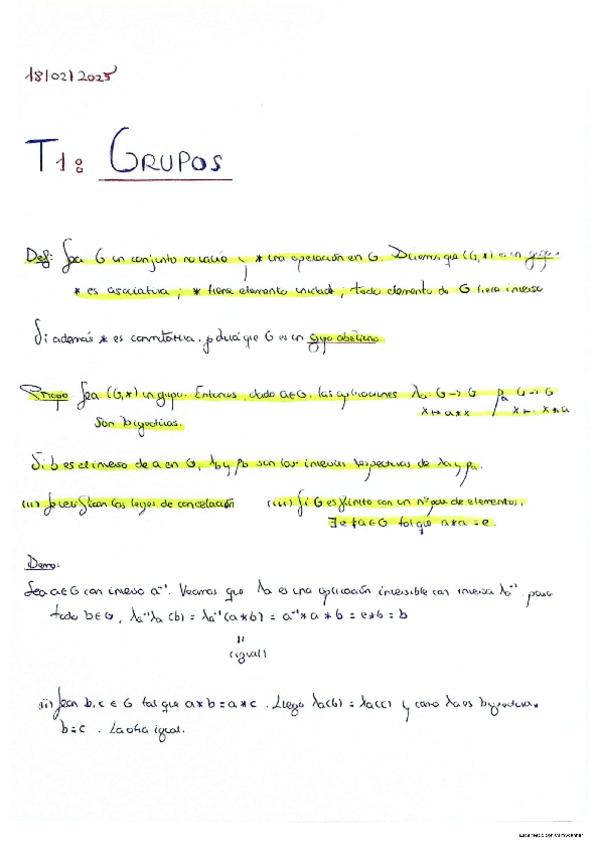 18/02/2025
T1: GRUPOS
Def: Sea G un conjunto no vacío y * una operación en G. Diremos que (G,*) es un grupo.
* es asociativa; * tiene elemento unidad; todo elemento de G tiene inverso
Si además * es conmutativa, podrá que G es un grupo abeliano.
Propo Sea (G,*) un grupo. Entonces, dado a∈G, las aplicaciones λa: G → G ρa G → G
x ↦ a*x x ↦ x*a
son biyectivas.
Si b es el inverso de a en G, λb y ρb son las inversas respectivas de λa y ρa.
(ii) Se verifican las leyes de cancelación (iii) Si G es finito con un nº par de elementos,
∃ e ≠ a∈G tal que a*a = e.
Demo:
Sea a∈G con inverso a⁻¹. Veamos que λa es una aplicación inversible con inversa λa⁻¹. para
todo b∈G, λa⁻¹λa(b) = λa⁻¹(a*b) = a⁻¹*a*b = e*b = b
"
(igual)
ii) Sean b,c ∈ G tal que a*b = a*c. Luego λa(b) = λa(c) y como λa es biyectiva,
b=c. La otra igual.